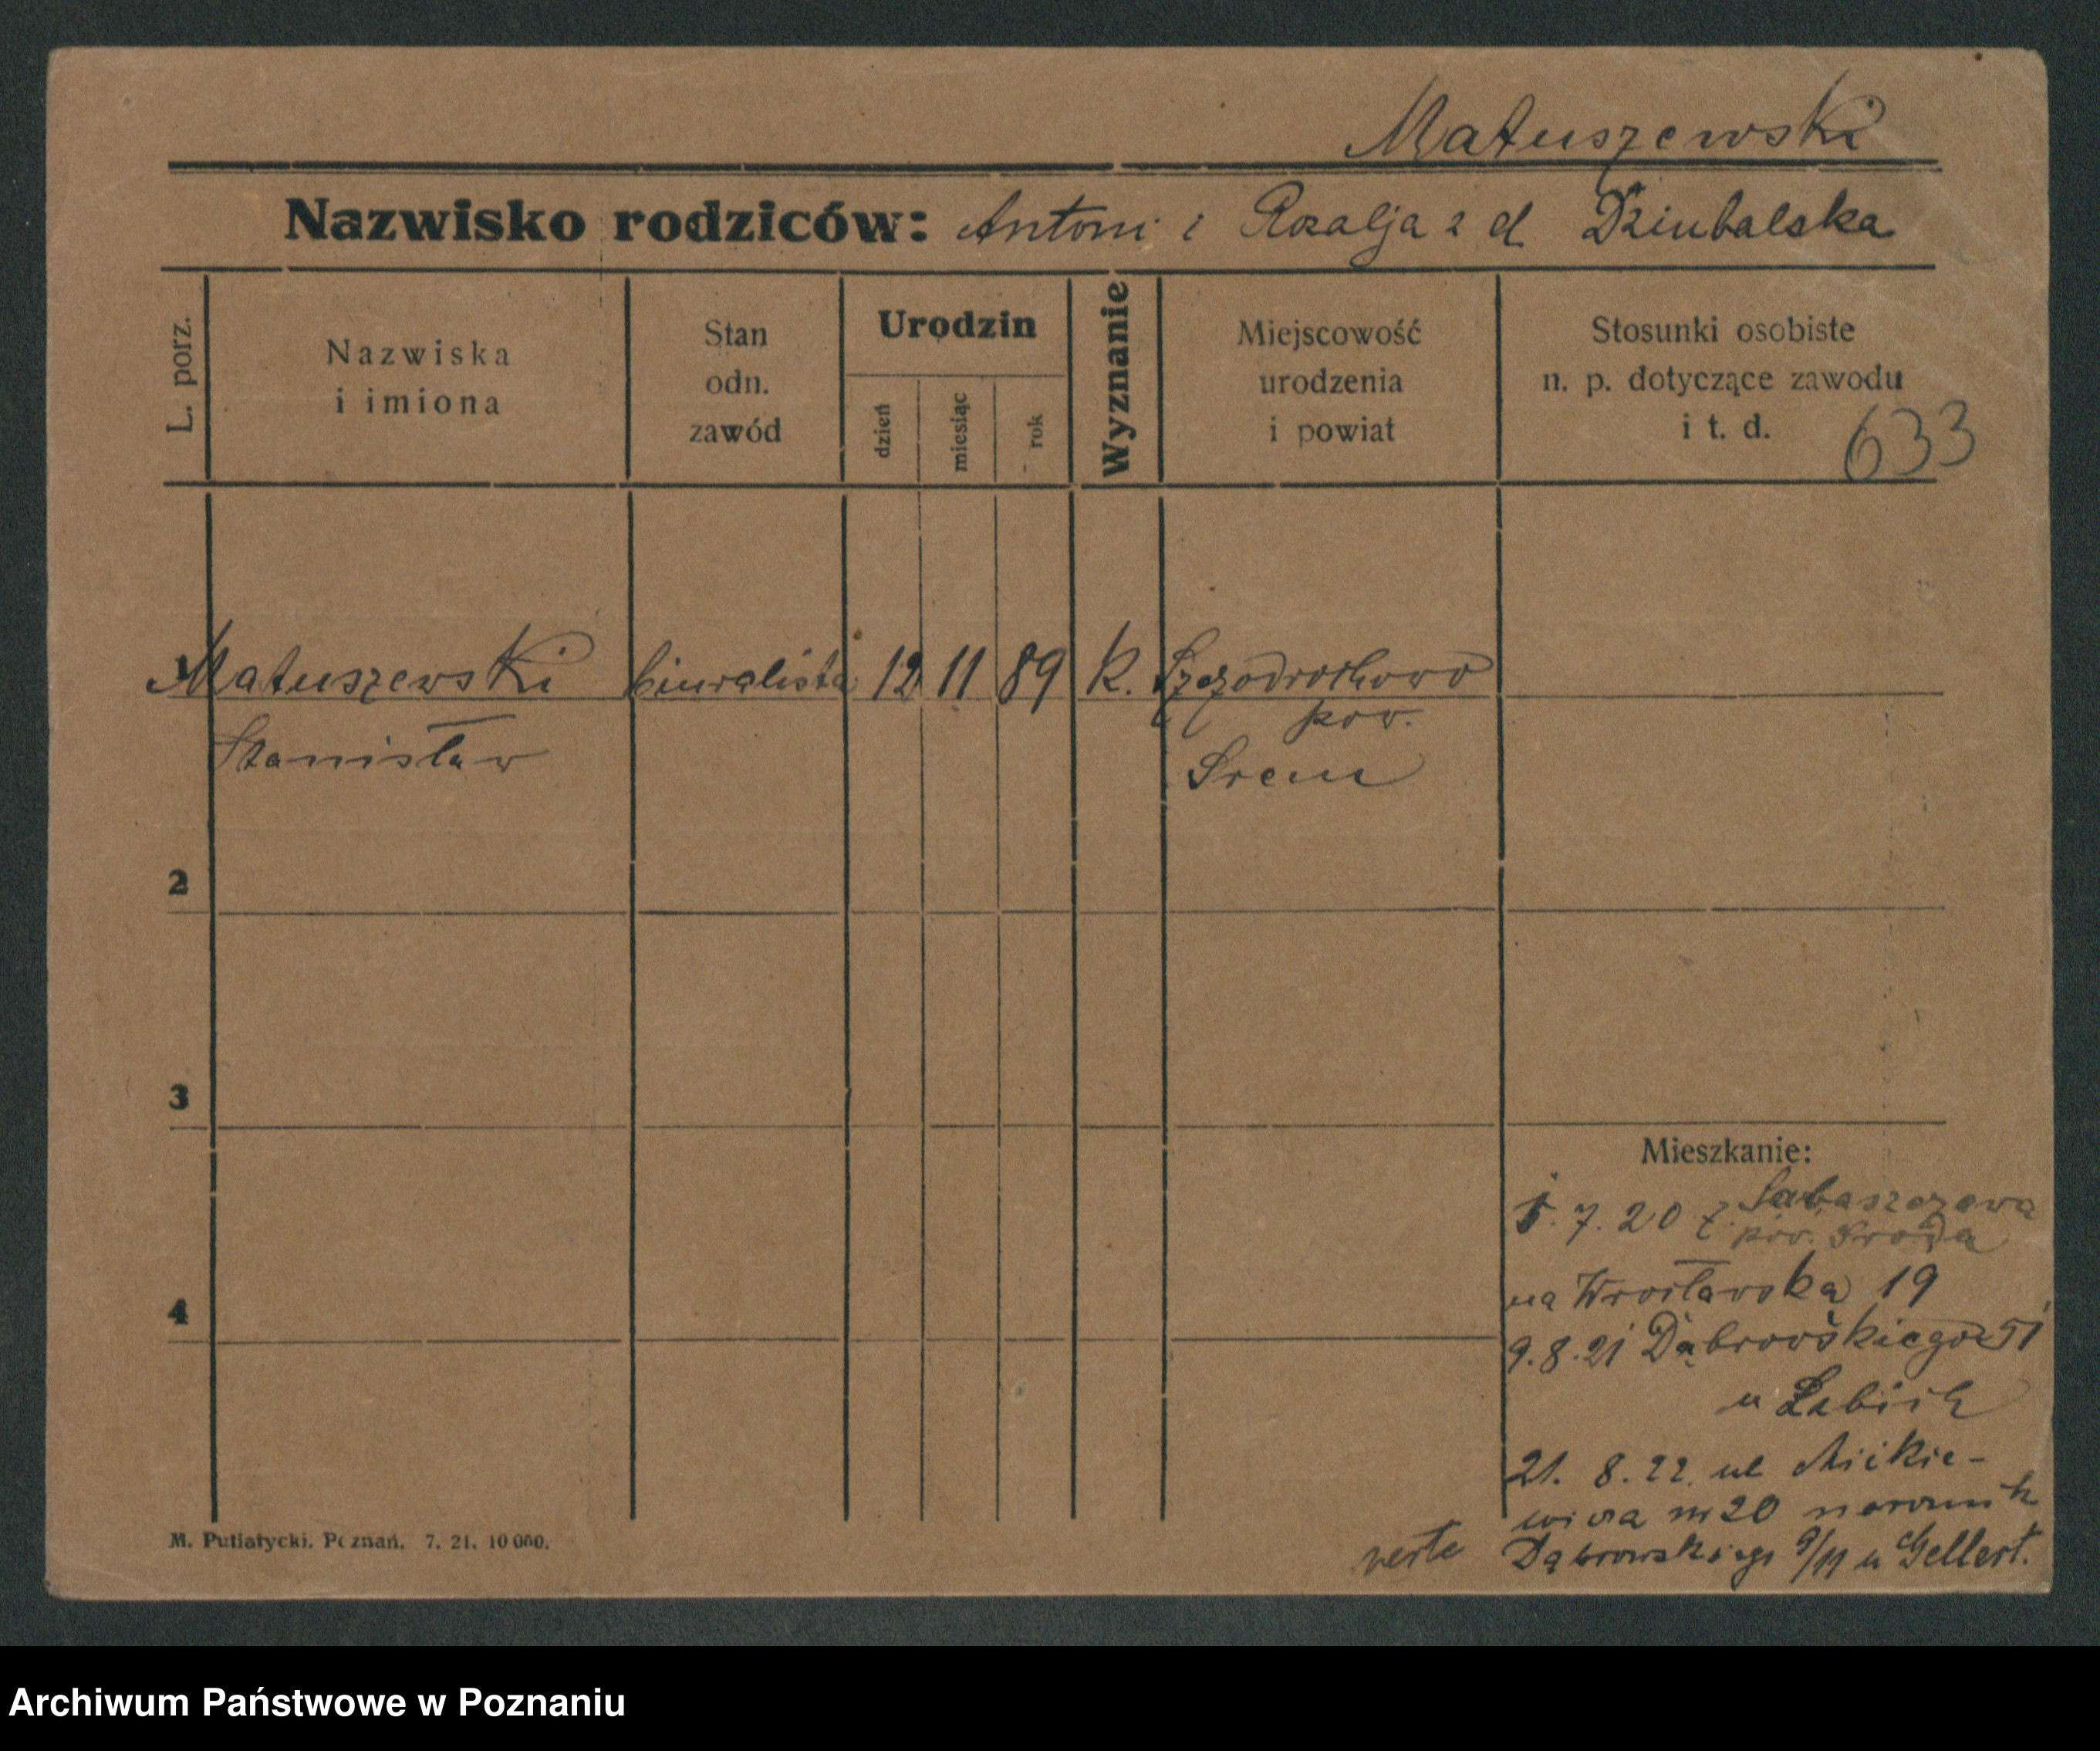 Matuszewski
Nazwisko rodziców: Antoni i Rozalja z d Dziubalska
L. porz.
Nazwiska
i imiona
Stan
odn.
zawód
Urodzin
dzień
miesiąc
rok
Wyznanie
Miejscowość
urodzenia
i powiat
Stosunki osobiste
n. p. dotyczące zawodu
i t. d.
633
Matuszewski biuralista 12 11 89 K. Szczodrochowo
Stanisław pow.
Srem
2
3
4
Mieszkanie:
7. 20 z
pow. Sroda
na Wrocławską 19
9.8.21 Dąbrowskiego 51
u
21. 8. 22. ul Mickie-
wicza nr 20 narożnik
Dąbrowskiego 9/11 u Gellert.
verte
M. Putiatycki. Poznań. 7. 21. 10 000.
Archiwum Państwowe w Poznaniu